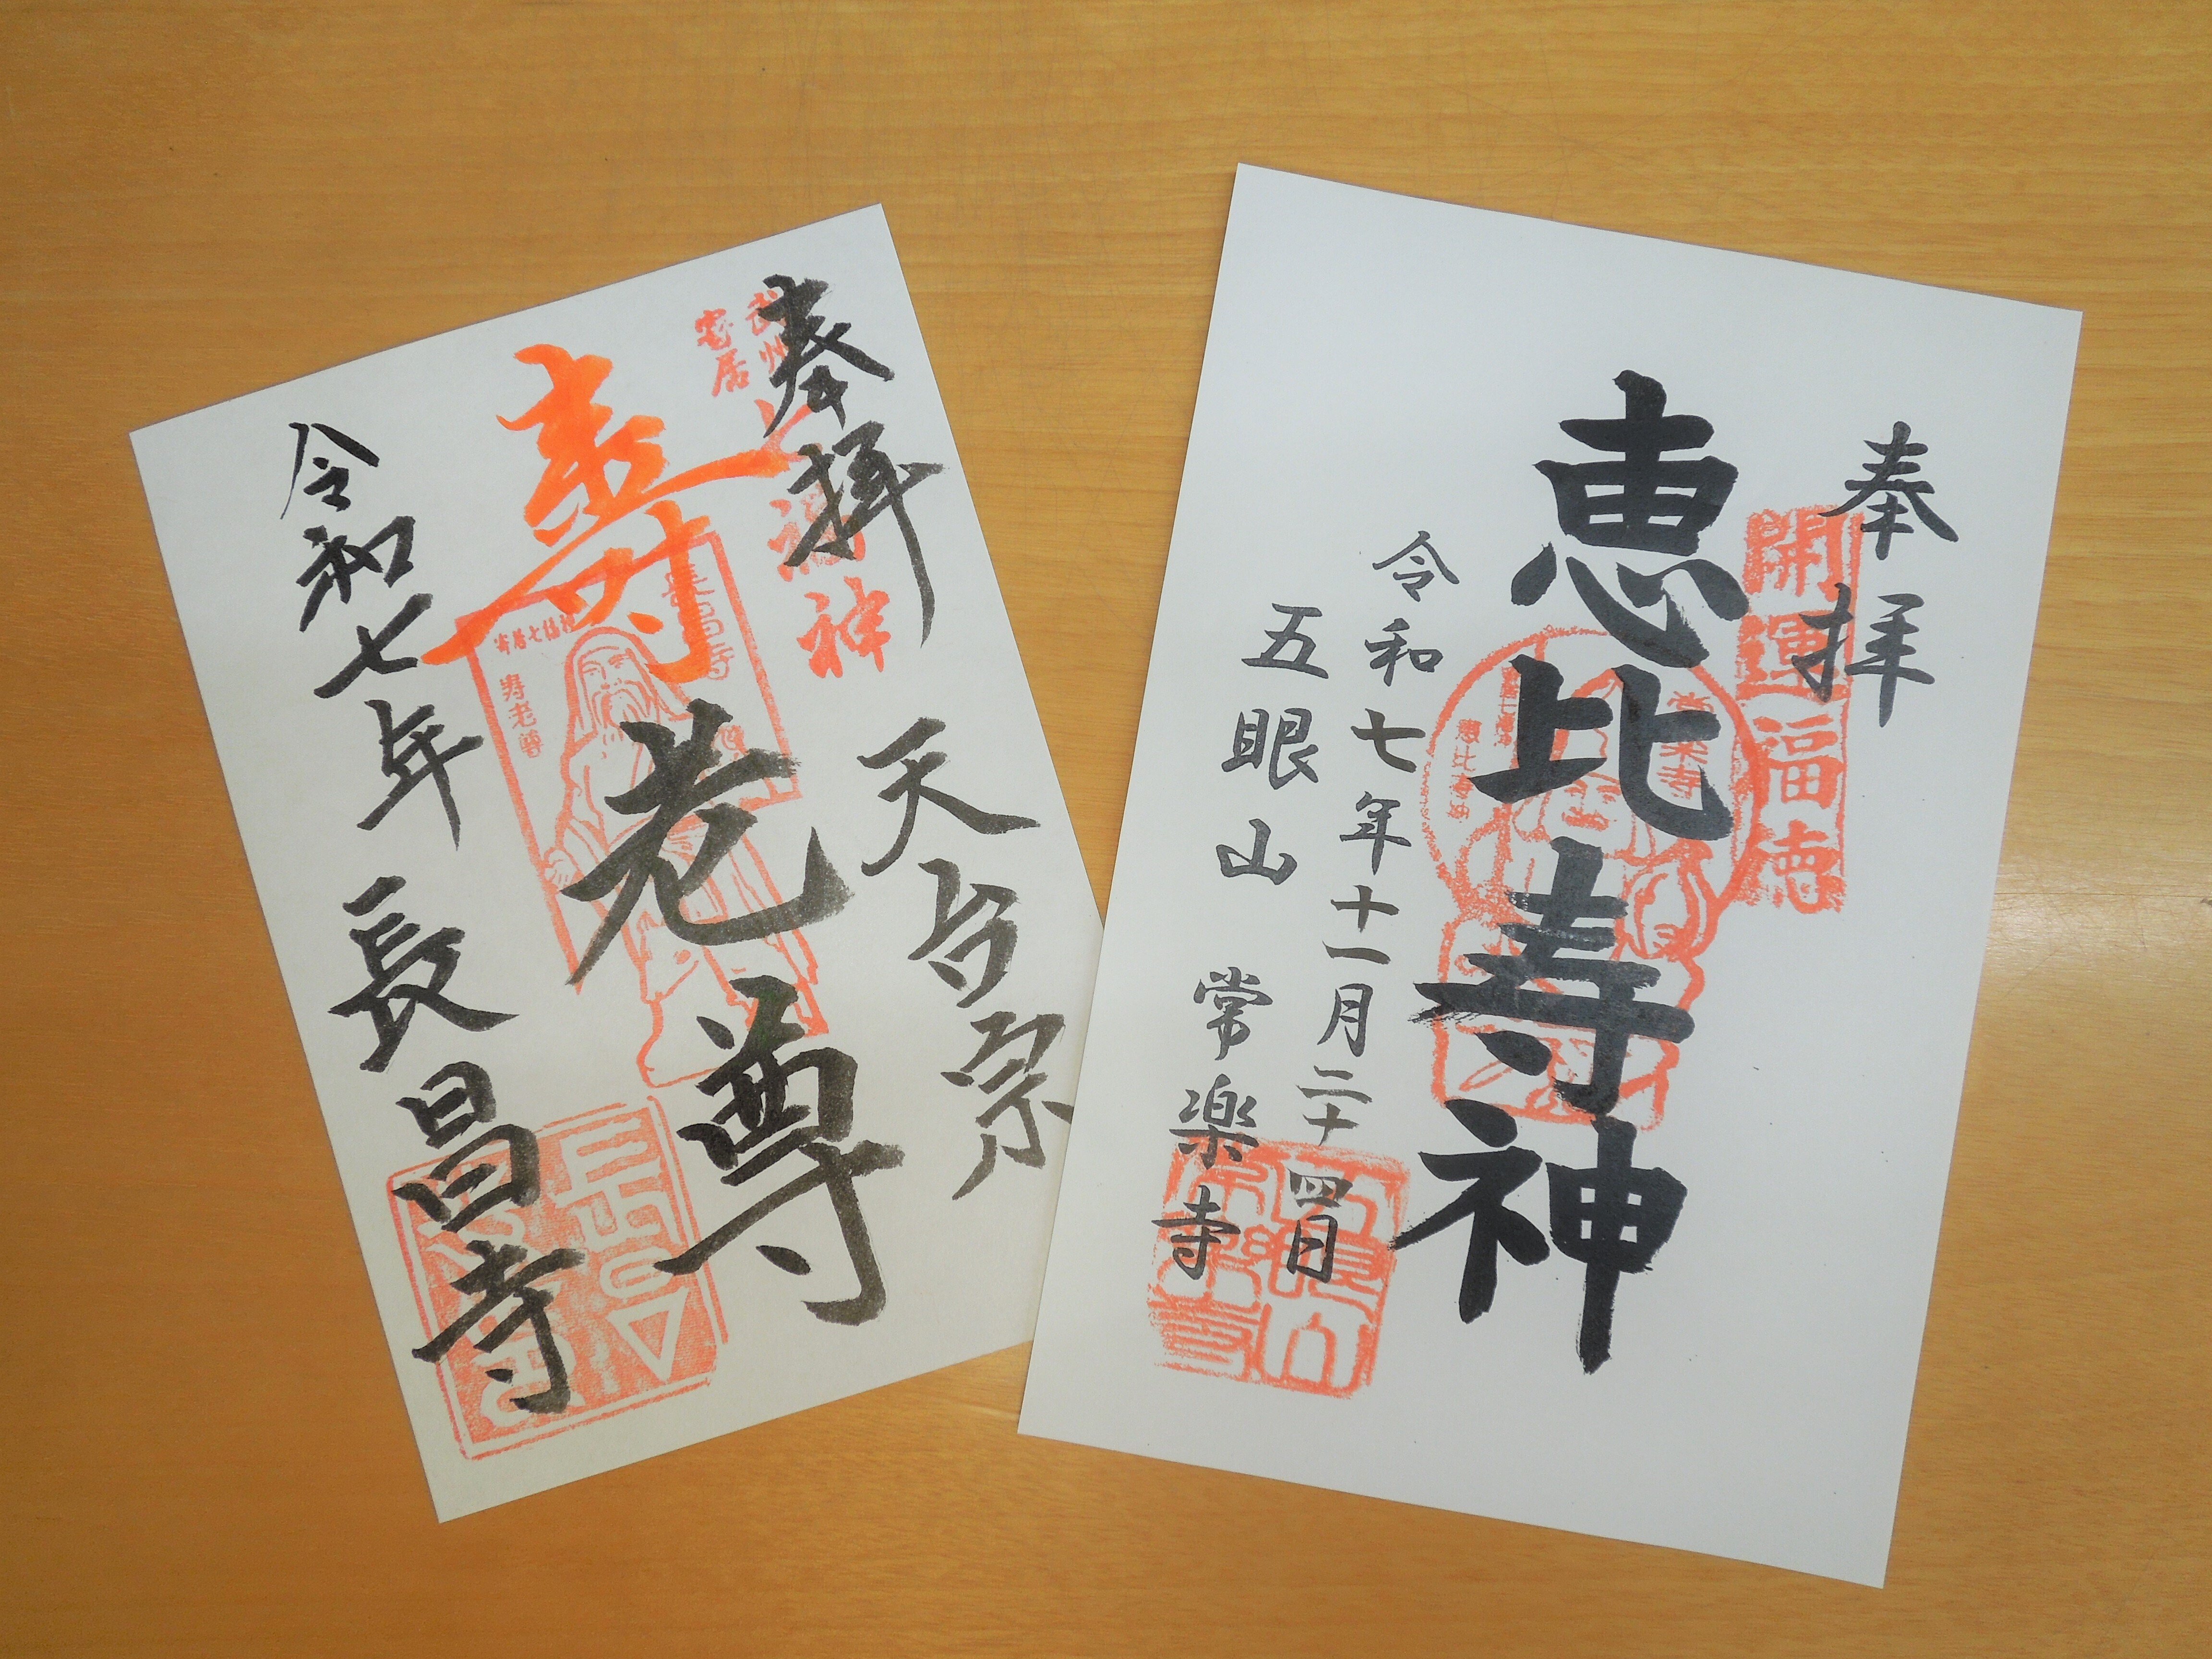 奉拝
武州
寄居
福神
天台宗
壽老尊
長昌寺
寄居七福神
寿老尊
令和七年 長昌寺
奉拝
開運福徳
恵比寿神
常楽寺
恵比寿神
令和七年十一月二十四日
五眼山 常楽寺
五眼山
常楽寺